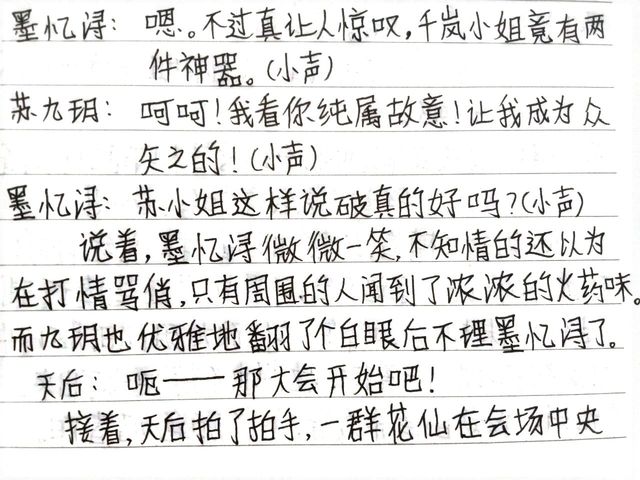 墨忆浔：嗯。不过真让人惊叹，千岚小姐竟有两
件神器。(小声)
苏九玥：呵呵！我看你纯属故意！让我成为众
矢之的！(小声)
墨忆浔：苏小姐这样说破真的好吗？(小声)
说着，墨忆浔微微一笑，不知情的还以为
在打情骂俏，只有周围的人闻到了浓浓的火药味。
而九玥也优雅地翻了个白眼后不理墨忆浔了。
天后：呃——那大会开始吧！
接着，天后拍了拍手，一群花仙在会场中央